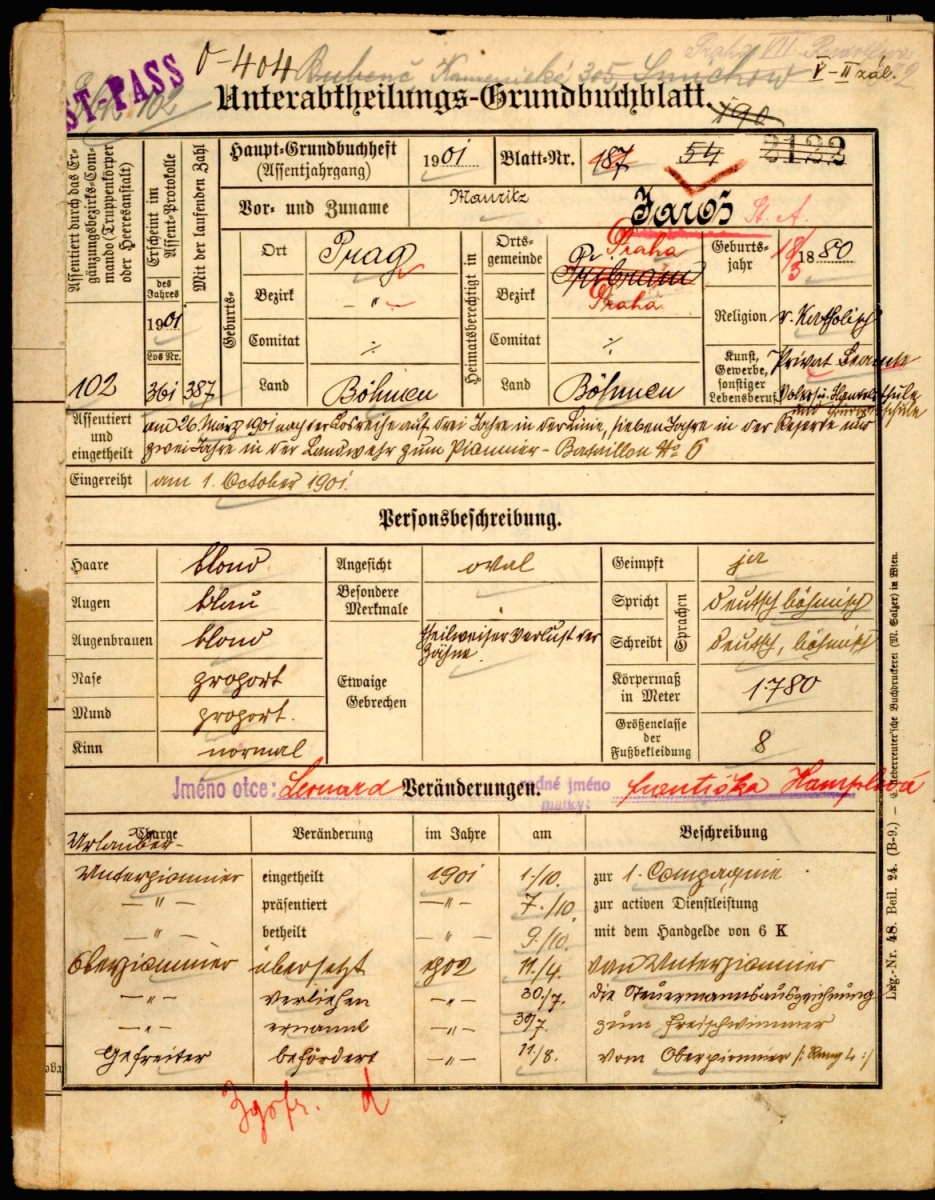 ST-PASS
0-404 Bubenč Kamenické 305, Smichow
V-II zál.
Unterabtheilungs-Grundbuchblatt.
190
Assentiert durch das Ergänzungsbezirks-Commando (Truppenkörper oder Heeresanstalt)
102
Erscheint im Assent-Protokolle
des Jahres
1901
Los Nr.
361
Mit der laufenden Zahl
387
Haupt-Grundbuchheft (Assentjahrgang) 1901 Blatt-Nr. 187 54 2122
Vor- und Zuname Mauritz Jaroš St. A.
Geburts-
Ort Prag
Bezirk - " -
Comitat ·/·
Land Böhmen
Heimatsberechtigt in
Ortsgemeinde Pribram Praha
Bezirk Praha
Comitat ·/·
Land Böhmen
Geburtsjahr 18/3 1880
Religion r. Katholisch
Kunst, Gewerbe, sonstiger Lebensberuf Privat Beamte
Assentiert und eingetheilt
am 26. März 1901 nach der Losreihe auf drei Jahre in der Linie, sieben Jahre in der Reserve und
zwei Jahre in der Landwehr zum Pionnier-Bataillon No 6
Eingereiht am 1. October 1901.
Personsbeschreibung.
Haare blond
Augen blau
Augenbrauen blond
Nase proport
Mund proport.
Kinn normal
Angesicht oval
Besondere Merkmale
theilweiser Verlust der
Zähne.
Etwaige Gebrechen
Geimpft ja
Sprachen
Spricht deutsch böhmisch
Schreibt deutsch, böhmisch
Körpermaß in Meter 1·780
Größenclasse der Fußbekleidung 8
Jméno otce: Leonard Veränderungen. rodné jméno matky: Františka Hampelová
Charge Veränderung im Jahre am Beschreibung
Urlauber-
Unterpionnier eingetheilt 1901 1./10. zur 1. Compagnie
- " - präsentiert - " - 7./10. zur activen Dienstleistung
- " - betheilt - " - 9./10. mit dem Handgelde von 6 K
Oberpionnier übersetzt 1902 11./4. von Unterpionnier
- " - verliehen - " - 30./7. die Steuermannsauszeichnung
- " - ernannt - " - 30/7. zum Freischwimmer
Gefreiter befördert - " - 11/8. vom Oberpionnier
Lag.-Nr. 48. Beil. 24. (B-9.)